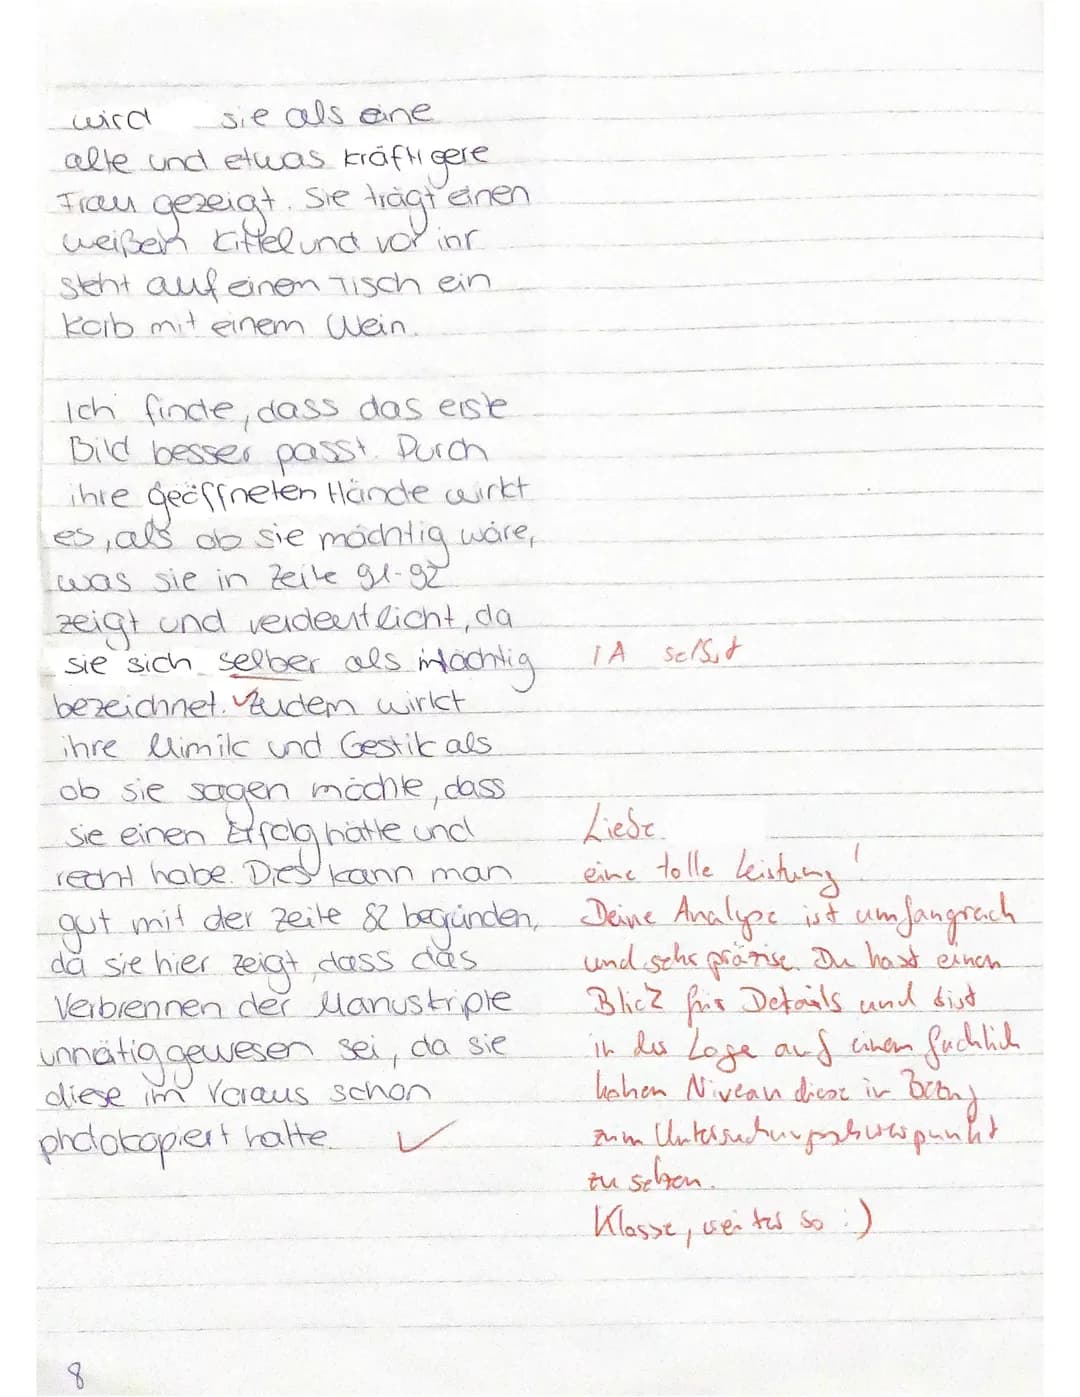 wird sie als eine
alte und etwas kräftigere
Frau gezeigt. Sie trägt einen
weißen Kittel und vor ihr
steht auf einen Tisch ein
Korb mit einem Wein.
Ich finde, dass das erste
Bild besser passt. Durch
ihre geöffneten Hände wirkt
es, als ob sie mächtig wäre,
was sie in Zeile 91-92
zeigt und verdeutlicht, da
sie sich selber als mächtig
IA selbst
bezeichnet. Zudem wirkt
ihre Mimik und Gestik als
ob sie sagen möchte, dass
sie einen Erfolg hätte und
recht habe. Dies kann man
gut mit der Zeile 82 begründen,
da sie hier zeigt, dass das
Verbrennen der Manuskripte
unnötig gewesen sei, da sie
diese im Voraus schon
photokopiert hatte. ✓
Liebe
eine tolle Leistung!
Deine Analyse ist umfangreich
und sehr präzise. Du hast einen
Blick für Details und bist
in der Lage auf einem fachlich
hohen Niveau diese in Bezug
zum Untersuchungsschwerpunkt
zu setzen.
Klasse, weiter so :)
8